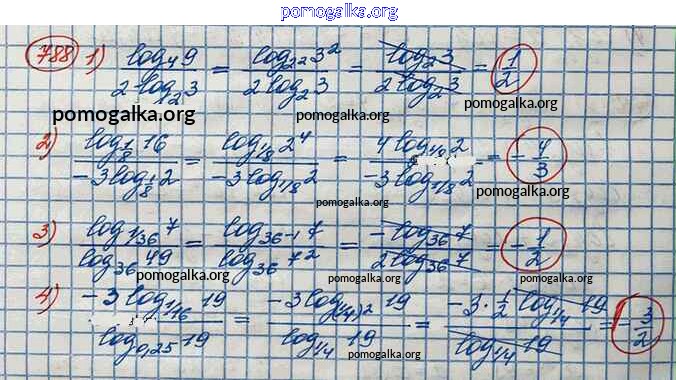 pomogalka.org
788 1) log₄9 / 2log₂3 = log₂²3² / 2log₂3 = log₂3 / 2log₂3 = 1/2
pomogalka.org pomogalka.org pomogalka.org
2) log₁/₈16 / -3log₁/₈2 = log₁/₈2⁴ / -3log₁/₈2 = 4log₁/₈2 / -3log₁/₈2 = -4/3
pomogalka.org pomogalka.org
3) log₁/₃₆7 / log₃₆49 = log₃₆-₁7 / log₃₆7² = -log₃₆7 / 2log₃₆7 = -1/2
pomogalka.org pomogalka.org pomogalka.org
4) -3log₁/₁₆19 / log₀,₂₅19 = -3log₍₁/₄₎²19 / log₁/₄19 = -3·1/2 log₁/₄19 / log₁/₄19 = -3/2
pomogalka.org